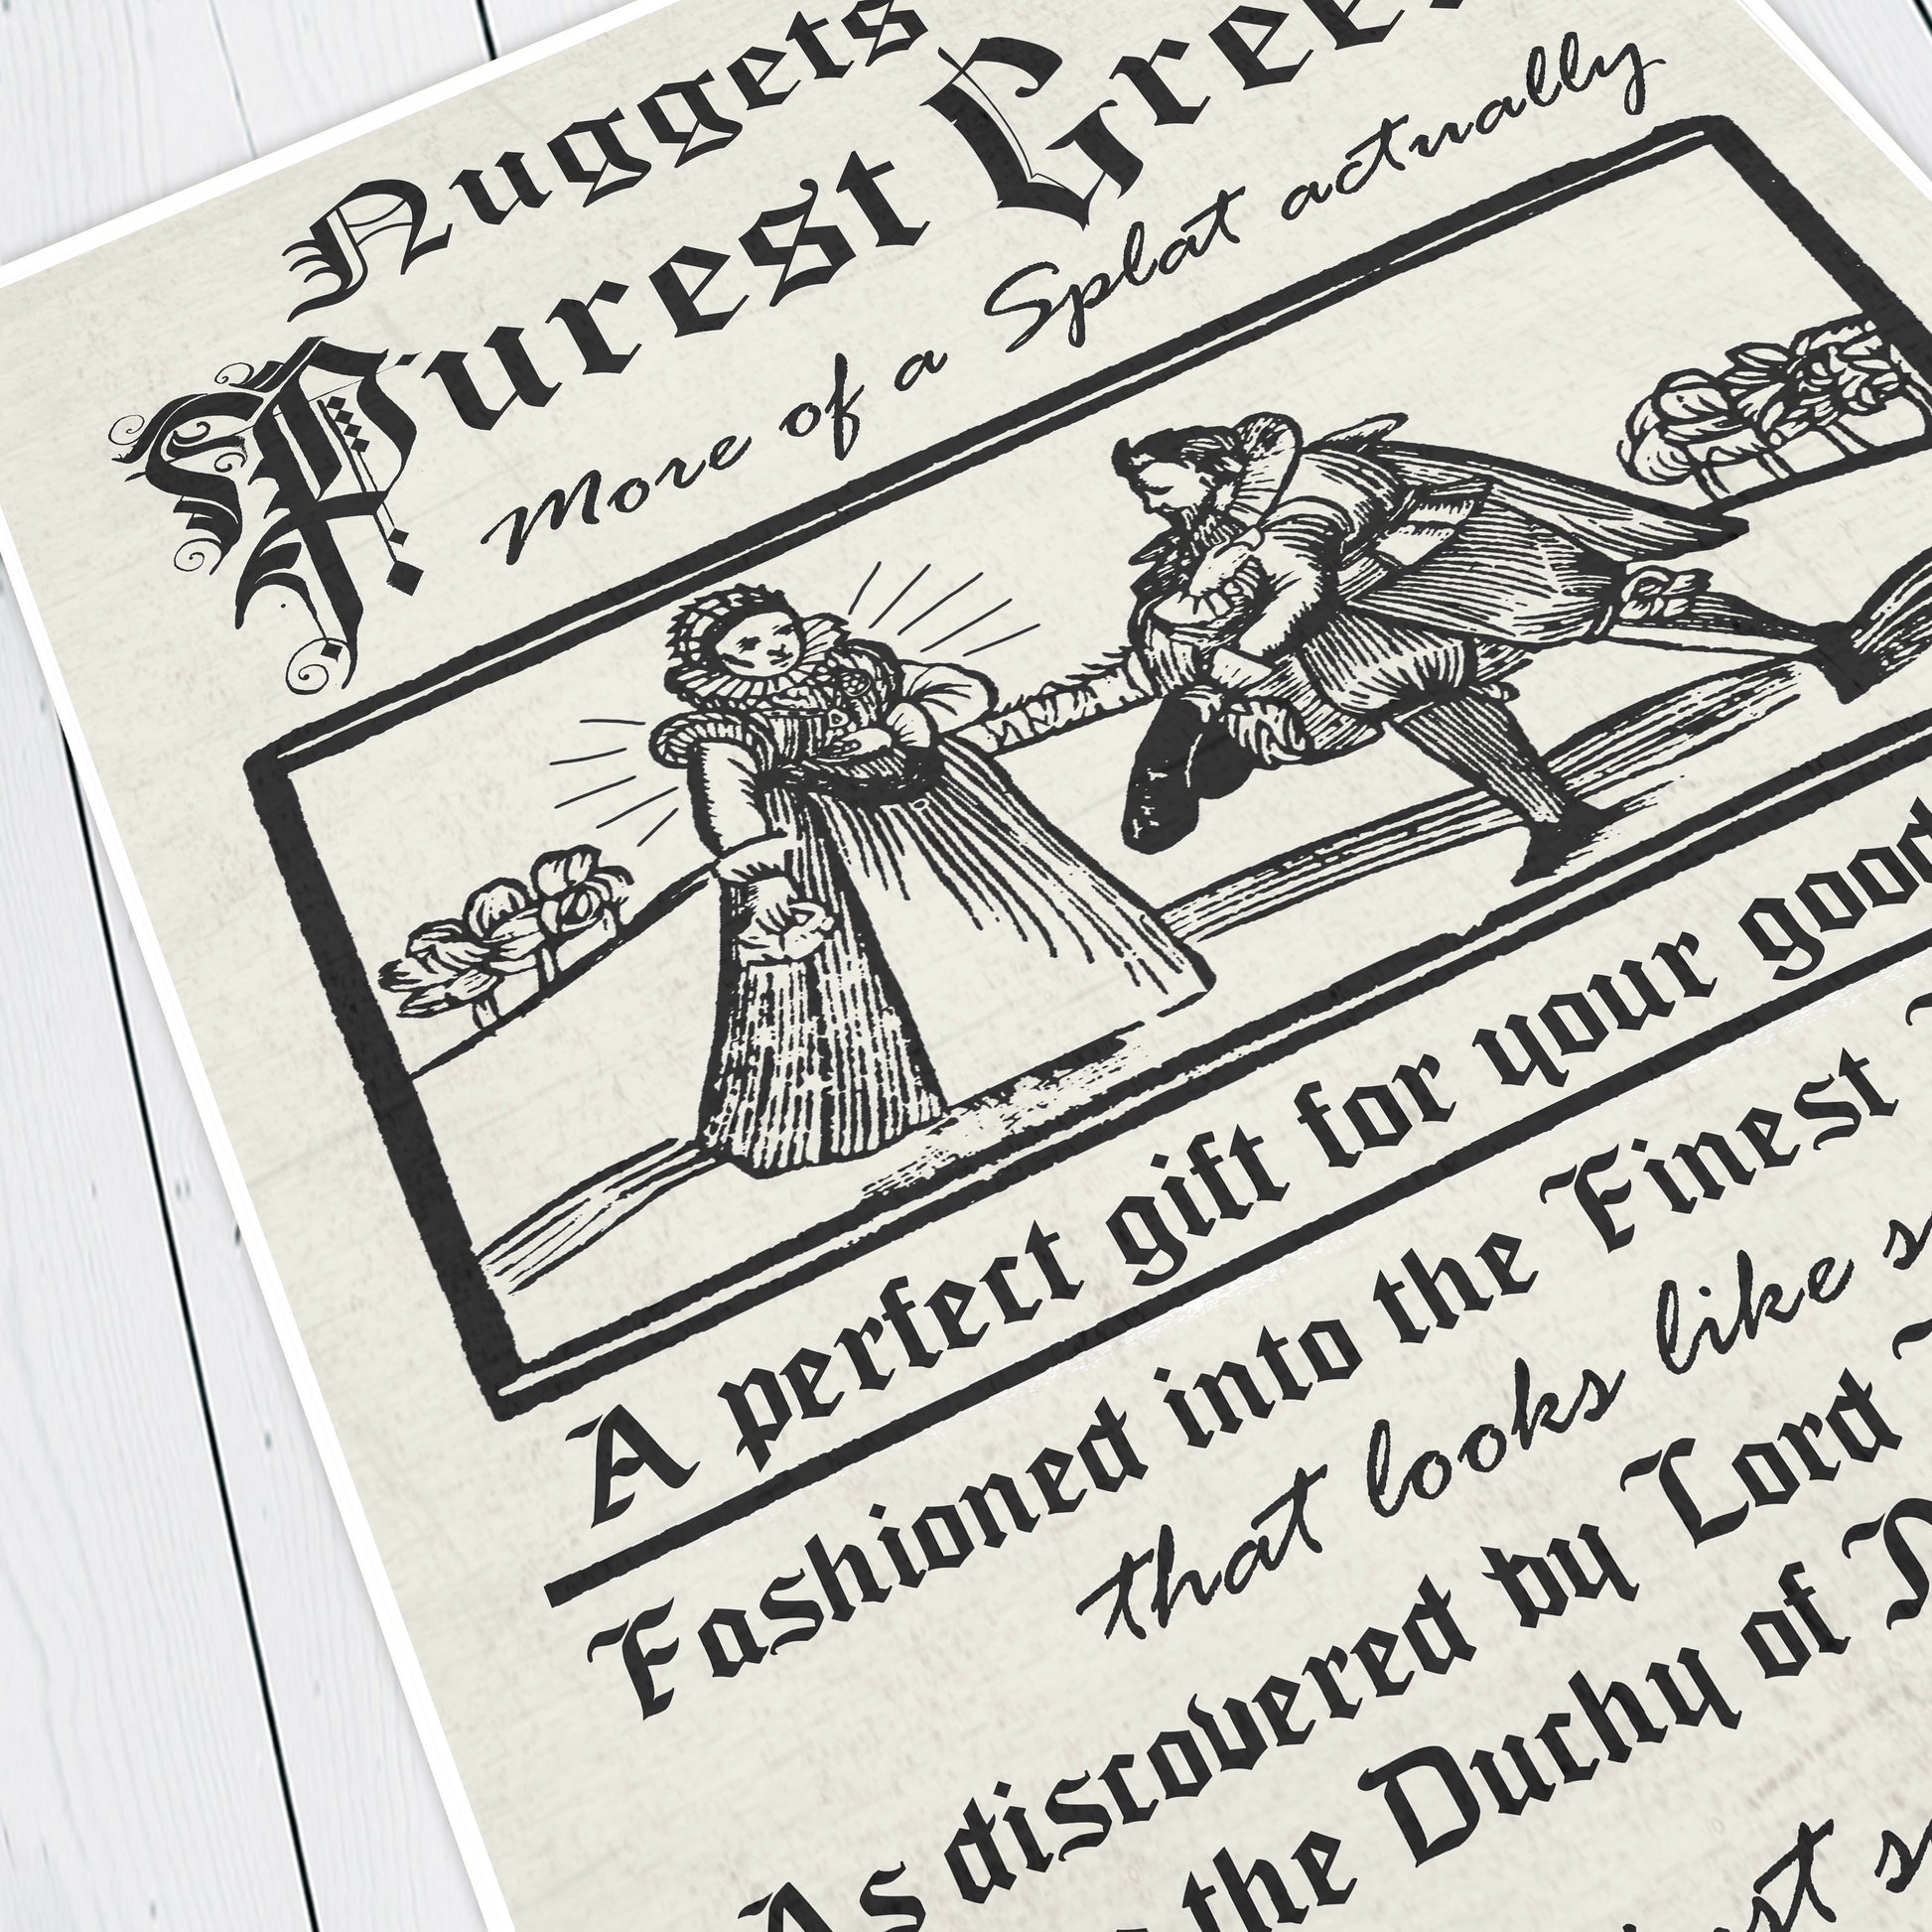 Nuggets
Purest Gree
More of a Splat actually
A perfect gift for your good
Fashioned into the Finest
that looks like s
As discovered by Lord
the Duchy of D